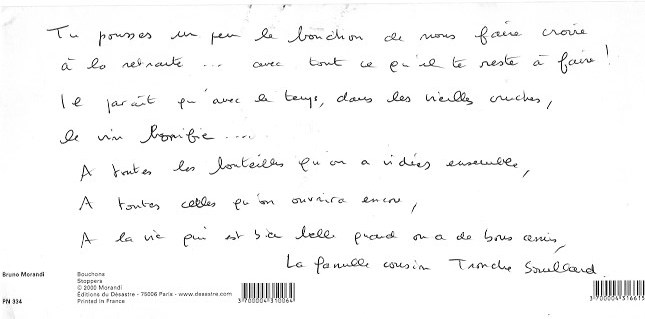 Tu pousses un peu le bouchon de nous faire croire
à la retraite ... avec tout ce qu'il te reste à faire !
Il paraît qu'avec le temps, dans les vieilles cruches,
le vin bonifie ....
A toutes les bouteilles qu'on a vidées ensemble,
A toutes celles qu'on ouvrira encore,
A la vie qui est bien belle quand on a de bons amis,
La famille cousin Tronche
Bruno Morandi
PN 334
Bouchons
Stoppers
© 2000 Morandi
Éditions du Désastre - 75006 Paris - www.desastre.com
Printed in France
3 700004 310064
3 700004 316615